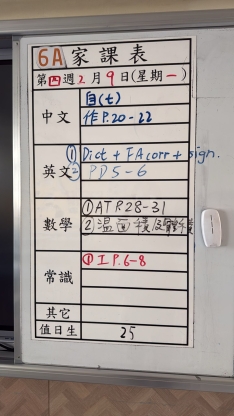 6A 家課表
第四週2月9日(星期一)
中文
自(t)
作P.20-22
英文
① Dict + FA corr + sign.
② PD5-6
數學
① AT P.28-31
② 溫面積
常識
① I P.6-8
其它
值日生 25